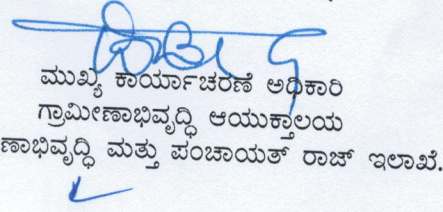 ಮುಖ್ಯ ಕಾರ್ಯಾಚರಣೆ ಅಧಿಕಾರಿ
ಗ್ರಾಮೀಣಾಭಿವೃದ್ಧಿ ಆಯುಕ್ತಾಲಯ
ಣಾಭಿವೃದ್ಧಿ ಮತ್ತು ಪಂಚಾಯತ್ ರಾಜ್ ಇಲಾಖೆ.